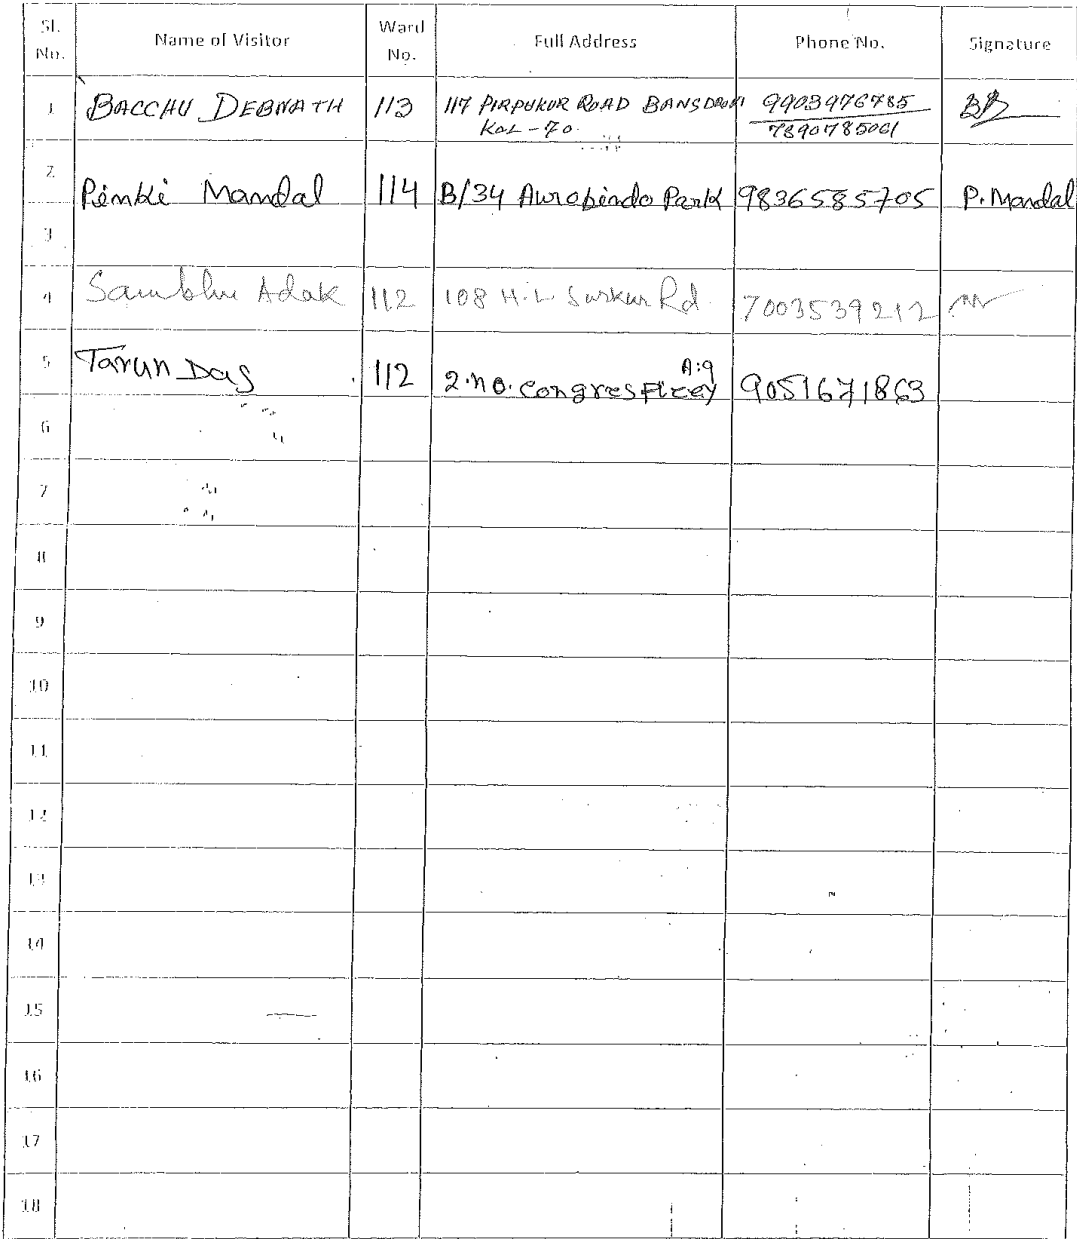 Sl. No. Name of Visitor Ward No. Full Address Phone No. Signature
1 BACCHU DEBNATH 113 117 PIRPUKUR ROAD BANSDRONI 9903976785
KOL-70. 7890785061
2 Pinki Mandal 114 B/34 Aurobindo Park 9836585705 P. Mandal
3
4 Sambhu Adak 112 108 H.L Sarkar Rd. 7003539212
5 Tarun Das 112 A:9
2.no. congres 9051671863
6
7
8
9
10
11
12
13
14
15
16
17
18